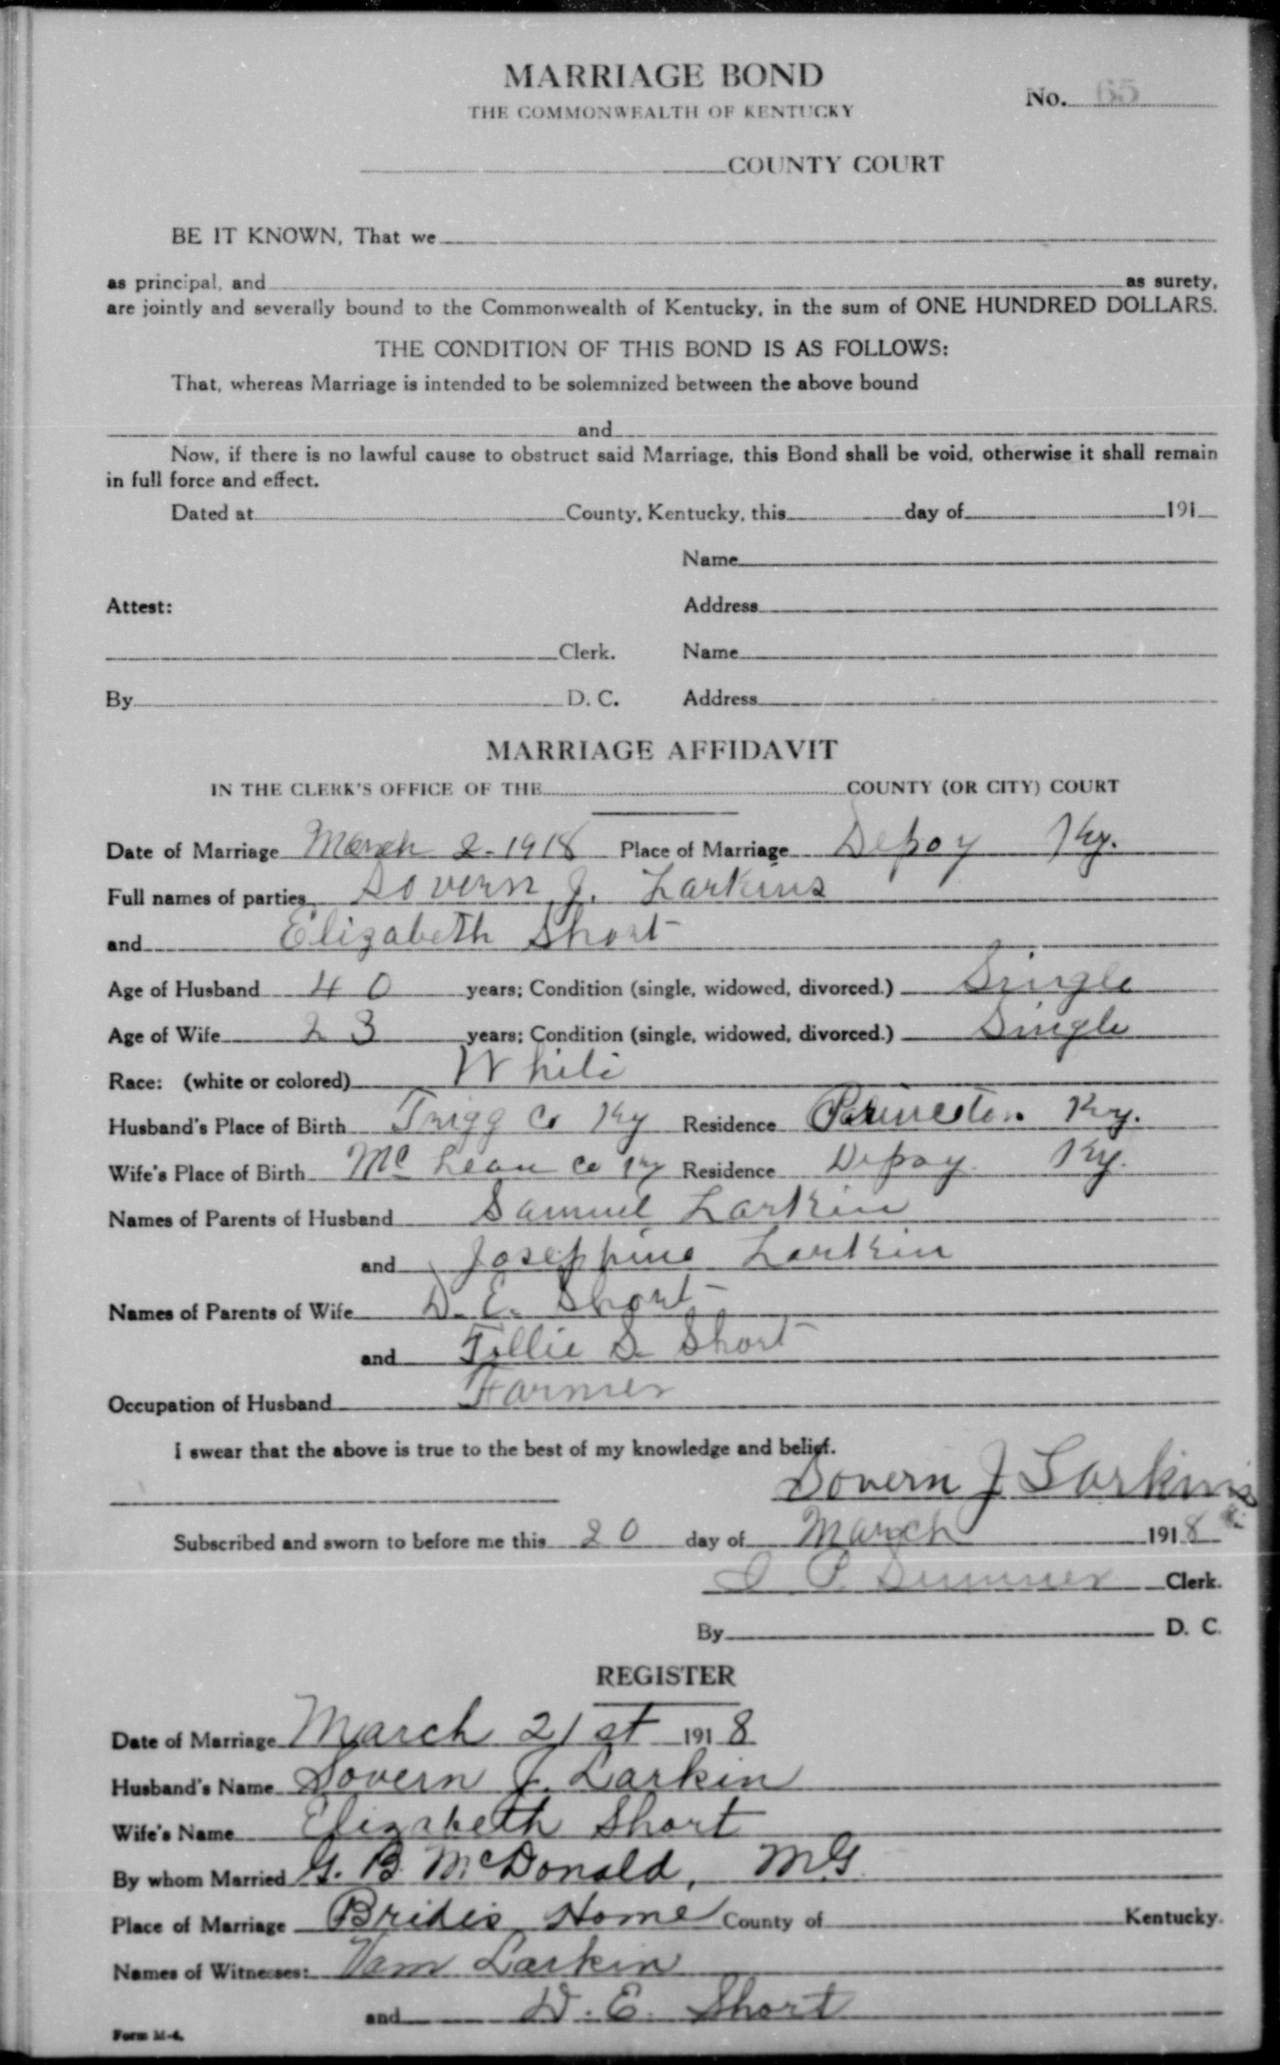 MARRIAGE BOND
THE COMMONWEALTH OF KENTUCKY
No. 65
COUNTY COURT
BE IT KNOWN, That we
as principal, and as surety,
are jointly and severally bound to the Commonwealth of Kentucky, in the sum of ONE HUNDRED DOLLARS.
THE CONDITION OF THIS BOND IS AS FOLLOWS:
That, whereas Marriage is intended to be solemnized between the above bound
and
Now, if there is no lawful cause to obstruct said Marriage, this Bond shall be void, otherwise it shall remain
in full force and effect.
Dated at County, Kentucky, this day of 191
Name
Attest: Address
Clerk. Name
By D. C. Address
MARRIAGE AFFIDAVIT
IN THE CLERK'S OFFICE OF THE COUNTY (OR CITY) COURT
Date of Marriage March 2-1918 Place of Marriage Depoy Ky.
Full names of parties Sovern J. Larkins
and Elizabeth Short
Age of Husband 40 years; Condition (single, widowed, divorced.) Single
Age of Wife 23 years; Condition (single, widowed, divorced.) Single
Race: (white or colored) White
Husband's Place of Birth Trigg Co Ky Residence Princeton Ky.
Wife's Place of Birth Mc Lean Co Ky Residence Depoy Ky.
Names of Parents of Husband Samuel Larkin
and Josephine Larkin
Names of Parents of Wife D. E. Short
and Tillie S. Short
Occupation of Husband Farmer
I swear that the above is true to the best of my knowledge and belief.
Sovern J Larkins
Subscribed and sworn to before me this 20 day of March 1918
Clerk.
By D. C.
REGISTER
Date of Marriage March 21st 1918
Husband's Name Sovern J. Larkin
Wife's Name Elizabeth Short
By whom Married G. B. McDonald, M.G.
Place of Marriage Brides Home County of Kentucky.
Names of Witnesses: Larkin
and D. E. Short
Form M-4.